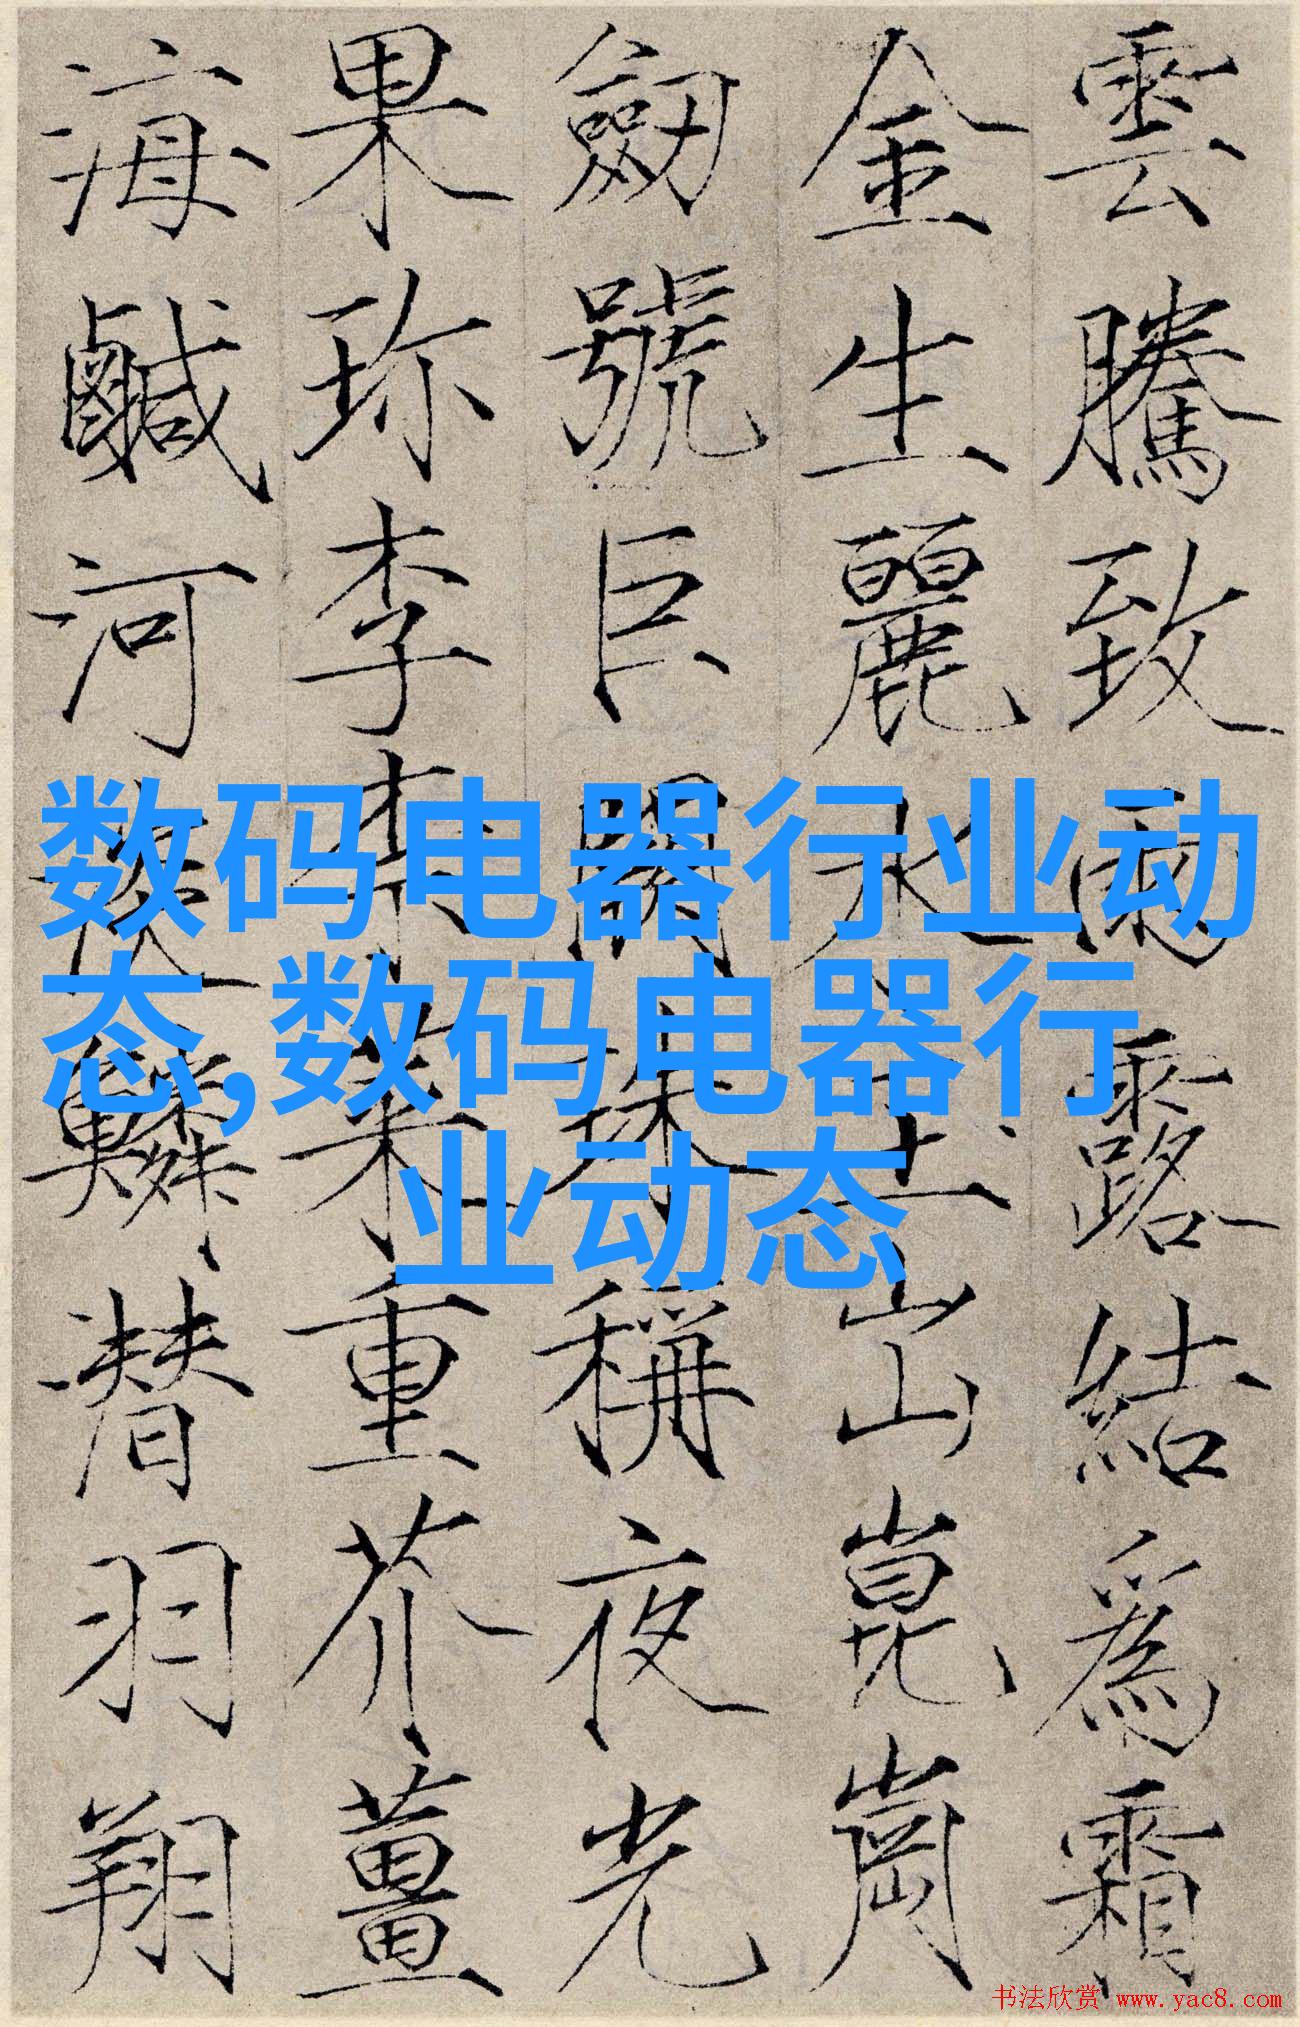 雲騰致雨露結爲霜
金生麗水玉出崑崗
劒號巨闕珠稱夜光
果珎李柰菜重芥薑
海鹹河淡鱗潜羽翔
数码电器行业动
态,数码电器行
业动态
书法欣赏 www.yac8.com